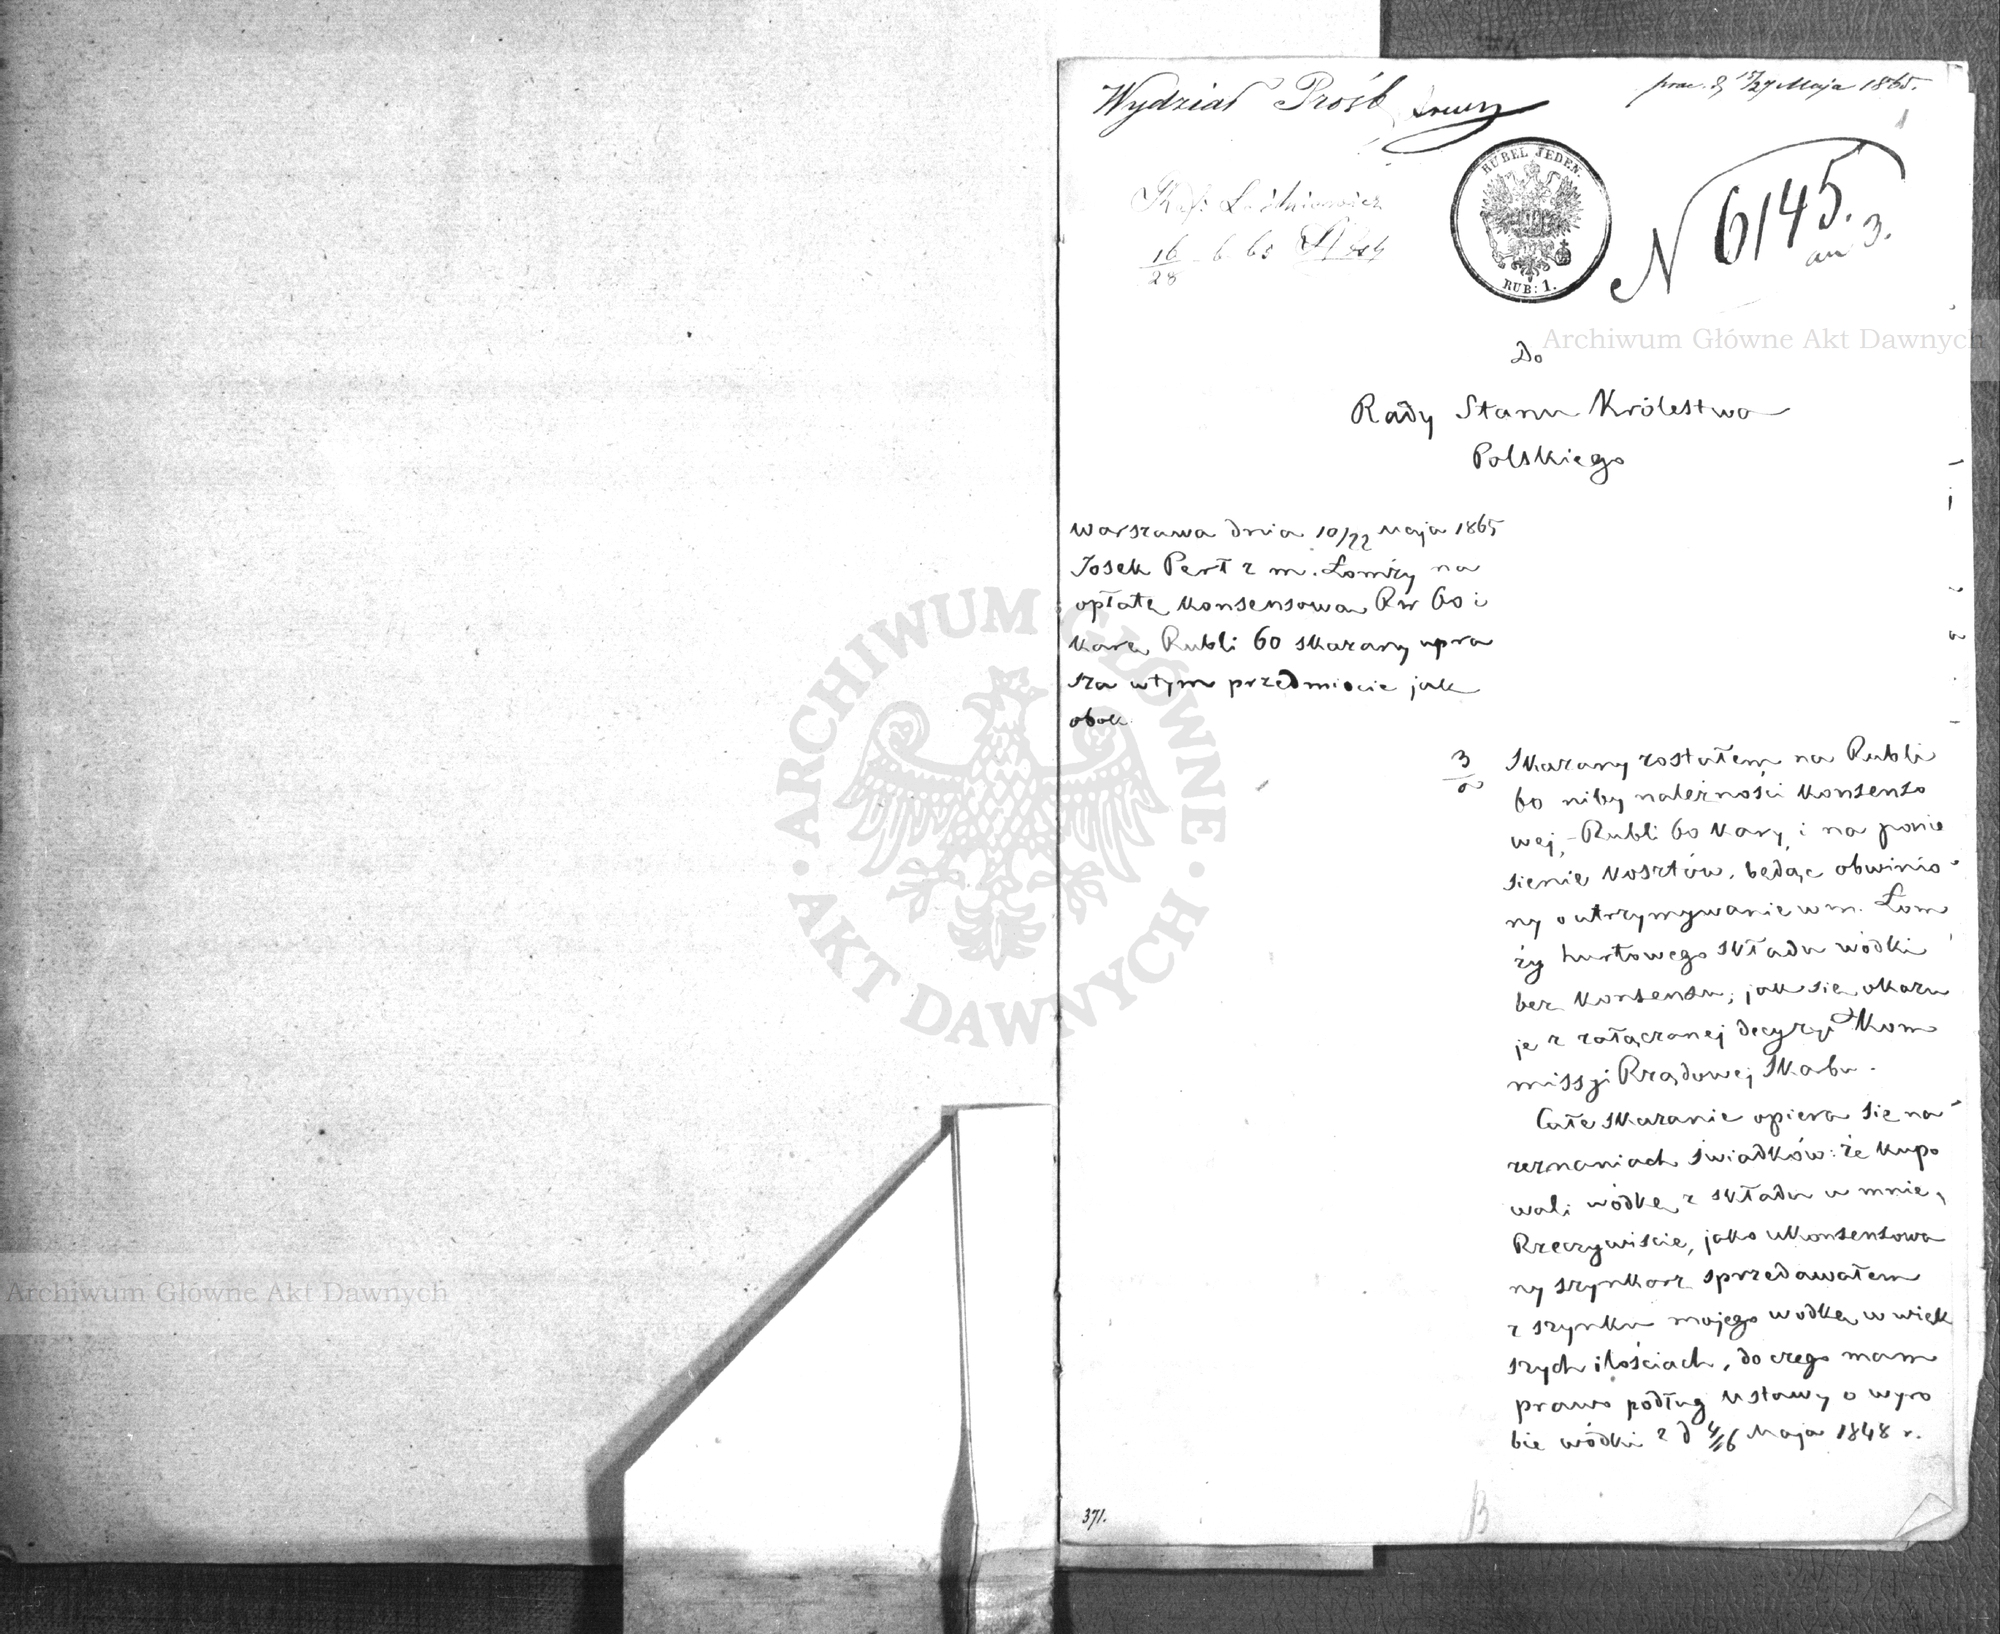 Wydział Próśb
prae. d. 15/27 Maja 1865.
RUBEL JEDEN.
RUB: 1.
N 6145.
an 3.
16/28 6 65
Do
Rady Stanu Królestwa
Polskiego
Warszawa dnia 10/22 Maja 1865
Josek Perł z m. Łomży na
opłatę konsensową Rs 60 i
karę Rubli 60 skazany upra
sza wtym przedmiocie jak
obok.
Skazany zostałem na Rubli
60 niby należności konsenso
wej, - Rubli 60 kary, i na ponie
sienie kosztów, będąc obwinio
ny o utrzymywanie w m. Łom
ży hurtowego składu wódki
bez konsensu; jak się okazu
je z załączonej decyzyi Kom
missyi Rządowej Skarbu.
Całe skazanie opiera się na
zeznaniach świadków: że kupo
wali wódkę z składu u mnie,
Rzeczywiście, jako ukonsensowa
ny szynkarz sprzedawałem
z szynku mojego wódkę w więk
szych ilościach, do czego mam
prawo podług Ustawy o wyro
bie wódki z d 4/16 Maja 1848 r.
371.
Archiwum Główne Akt Dawnych
Archiwum Główne Akt Dawnych
ARCHIWUM GŁÓWNE
AKT DAWNYCH